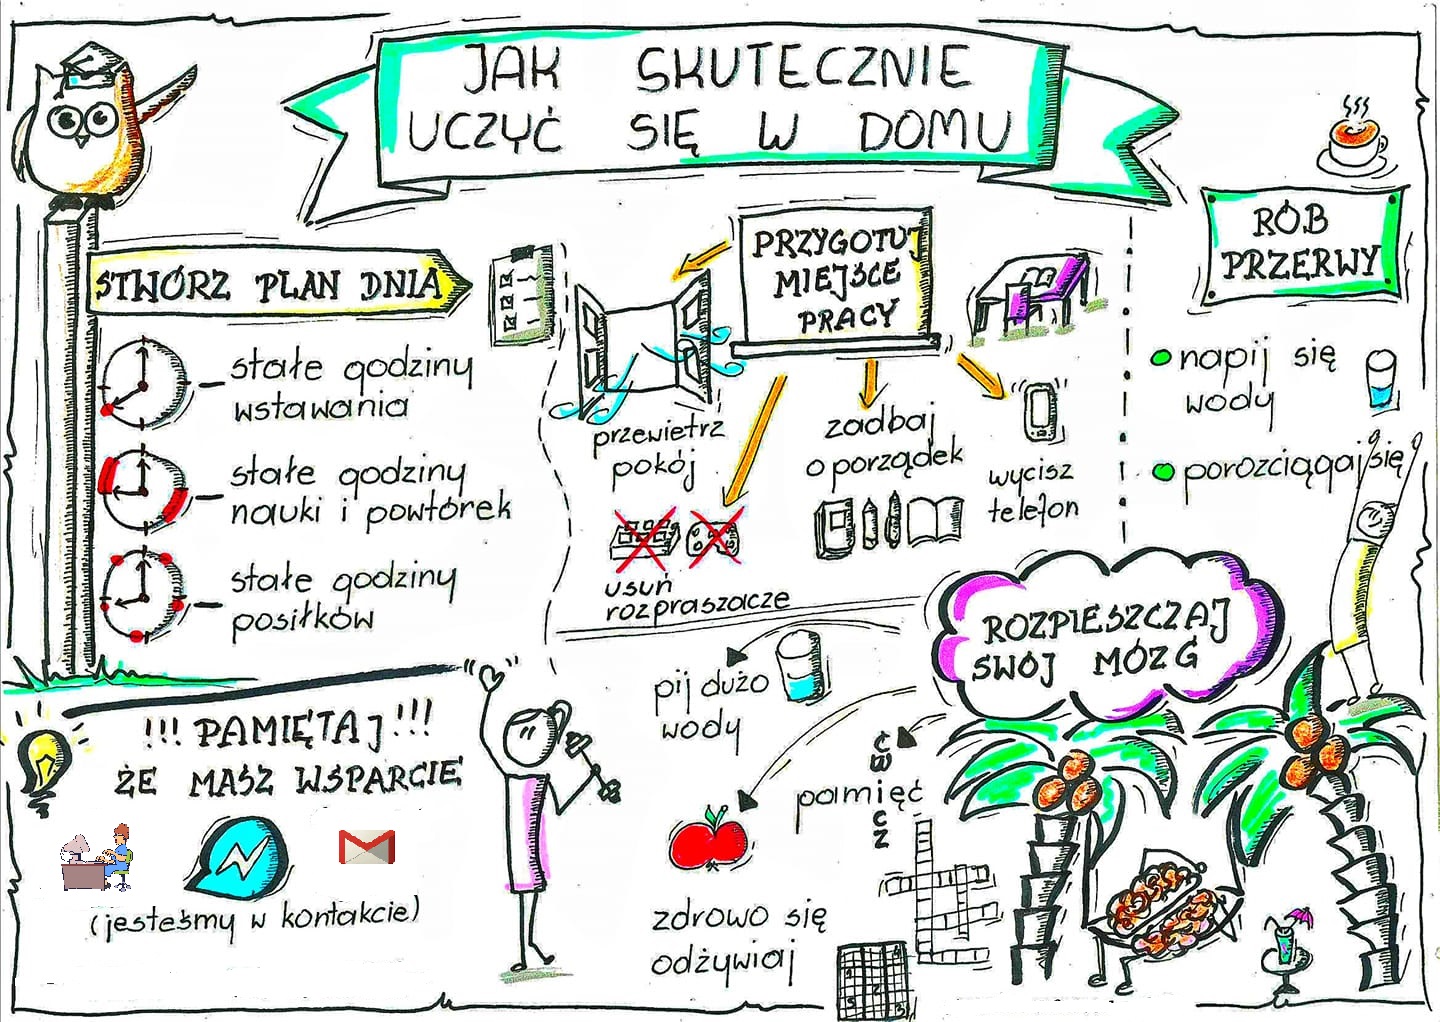 JAK SKUTECZNIE
UCZYĆ SIĘ W DOMU
STWÓRZ PLAN DNIA
stałe godziny
wstawania
stałe godziny
nauki i powtórek
stałe godziny
posiłków
PRZYGOTUJ
MIEJSCE
PRACY
przewietrz
pokój
usuń
rozpraszacze
zadbaj
o porządek
wycisz
telefon
RÓB
PRZERWY
napij się
wody
porozciągaj się
!!! PAMIĘTAJ !!!
ŻE MASZ WSPARCIE
(jesteśmy w kontakcie)
ROZPIESZCZAJ
SWÓJ MÓZG
pij dużo
wody
zdrowo się
odżywiaj
ćwicz
pamięć